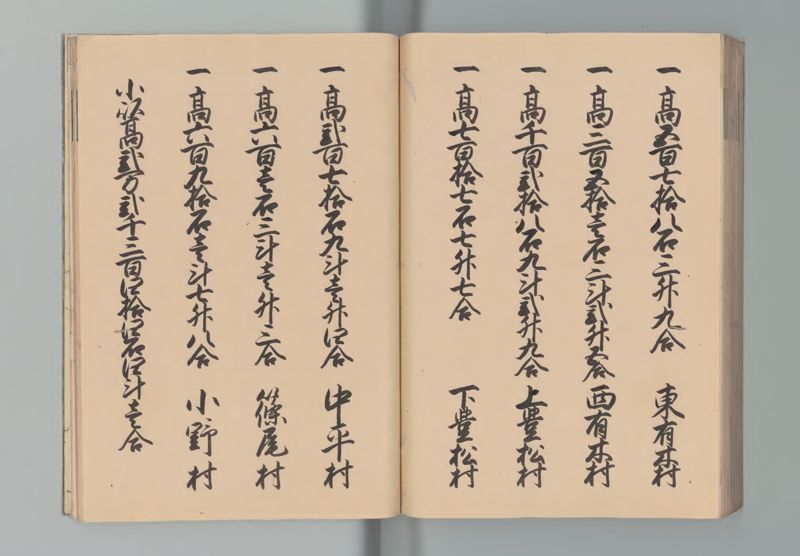 一 高五百七拾八石三升九合 東有木村
一 高三百五拾壱石二斗弐升五合 西有木村
一 高千百弐拾八石九斗弐升九合 上豊松村
一 高七百拾七石七升七合 下豊松村
一 高弐百七拾石九斗壱升四合 中平村
一 高六百壱石三斗壱升三合 篠尾村
一 高六百九拾石壱斗七升八合 小野村
小以高弐万弐千三百四拾四石四斗壱合